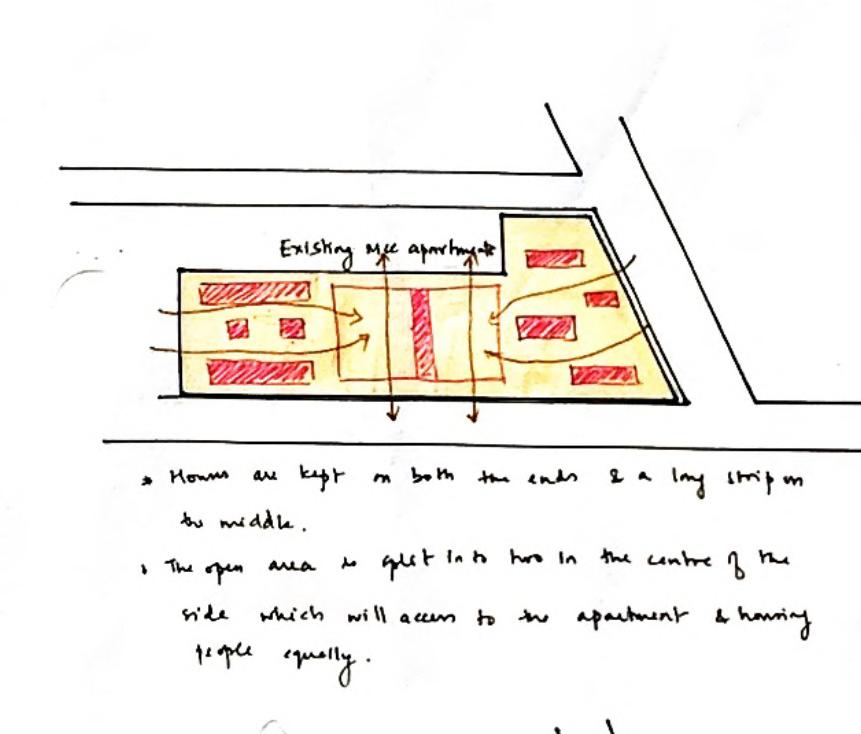 Existing apartments
* Houses are kept on both the ends & a long strip on
the middle.
* The open area is split into two in the centre of the
side which will access to the apartment & housing
people equally.